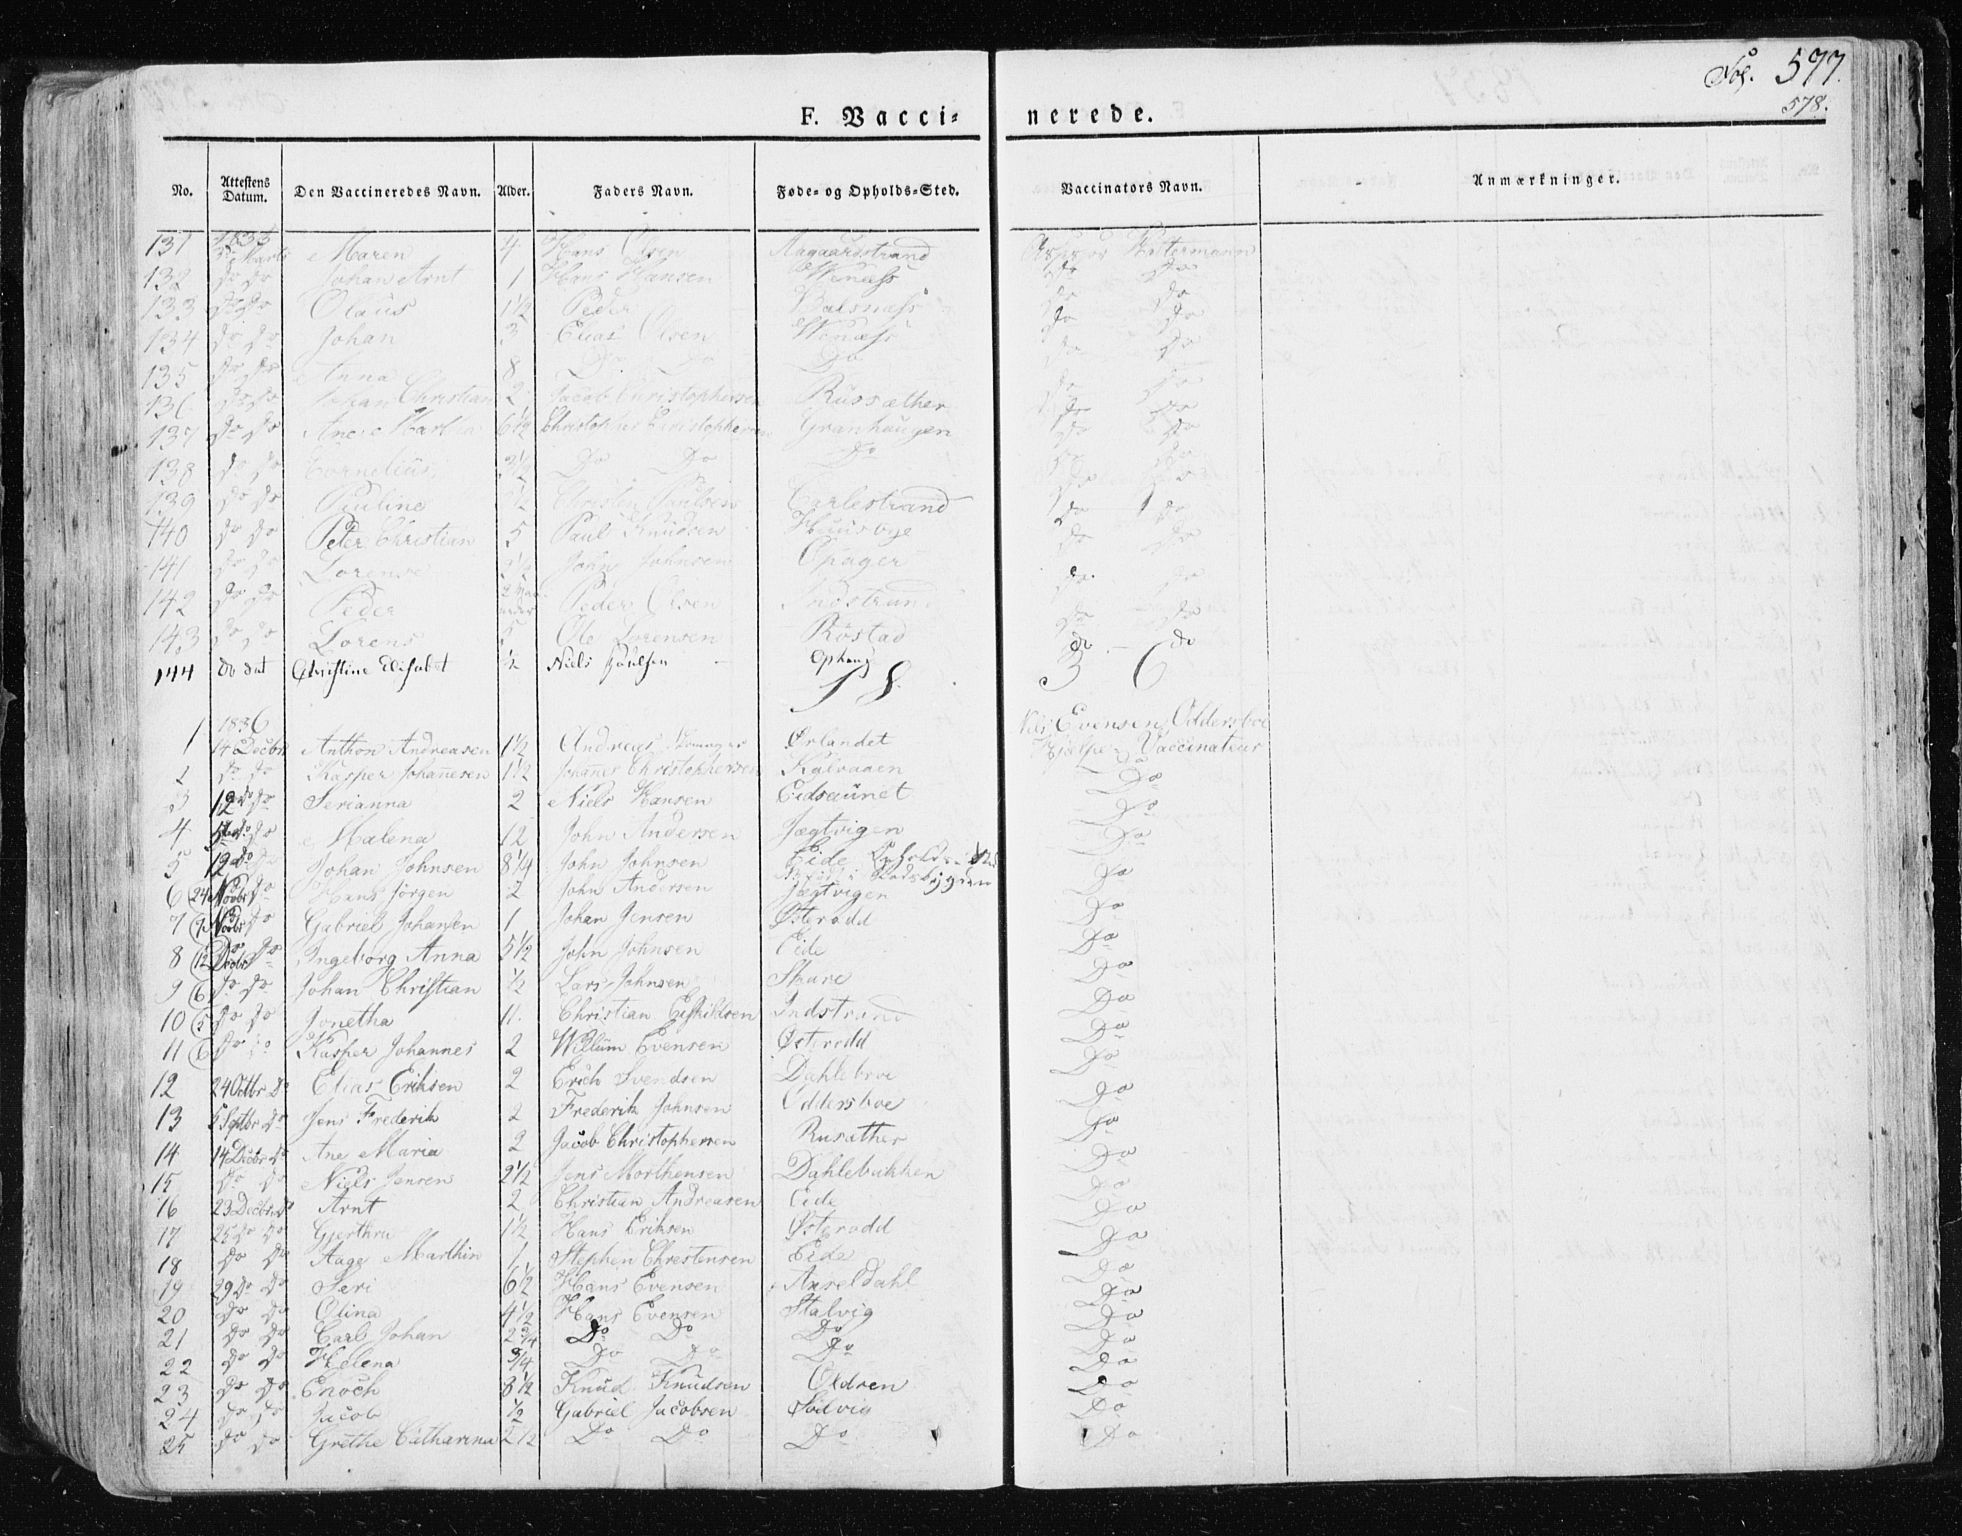 Fol. 577.
578.
F. Vaccinerede.
No. Attestens Datum. Den Vaccineredes Navn. Alder. Faders Navn. Føde- og Opholds-Sted. Vaccinators Navn. Anmærkninger.
131 1835 Marts Maren 4 Hans Olsen Aagaardstrand
132 Do Do Johan Arnt 1 Hans Hansen Do Do
133 Do Do Olaus 1 1/2 Peder Balsnæss Do Do
134 Do Do Johan 3 Elias Olsen Do Do
135 Do Do Anna 8 Do Do Do Do Do
136 Do Do Johan Christian 2 Jacob Christophersen Russæther Do Do
137 Do Do Ane 6 1/2 Christopher Christophersen Granhaugen Do Do
138 Do Do Cornelius 3 1/2 Do Do Do Do Do
139 Do Do Pauline Christen Paulsen Carlestrand Do Do
140 Do Do Peter Christian 5 Paul Knudsen Huusbye Do Do
141 Do Do Lorense John Johnsen Opager Do Do
142 Do Do Peder Peder Olsen Indstrand Do Do
143 Do Do Lorens 5 Ole Lorensen Röstad Do Do
144 do dat Christine Elisabet 1/2 Niels Paulsen Ophaug do do
1836
1 14 Decbr Anthon Andreasen 1 1/2 Andreas Ørlandet Nils Evensen Oddersboe Hjelpe Vaccinateur
2 Do Do Kasper Johannesen 1 1/2 Johannes Christophersen Kalvaaen Do
3 12 Do Serianna 2 Niels Hansen Eidsaunet Do
4 Do Malena 12 John Andersen Jægtvigen Do
5 12 Do Johan Johnsen 8 1/4 John Johnsen Eide Do
6 24 Novbr Do Hans Jörgen 2 John Andersen Jægtvigen Do
7 9 Novbr Do Gabriel Johansen 1 Johan Jensen Østeradd Do
8 12 Decbr Do Ingeborg Anna 5 1/2 John Johnsen Eide Do
9 6 Do Do Johan Christian 1/2 Lars Johnsen Skare Do
10 5 Do Do Jonetha 11 Christian Eskildsen Indstrand Do
11 6 Do Do Kasper Johannes 2 Willum Evensen Østeradd Do
12 24 Octbr Do Elias Eriksen 2 Erich Svendsen Dahlebroe Do
13 5 Septbr Do Jens Frederik 2 Frederik Johnsen Oddersboe Do
14 14 Decbr Do Ane Maria 2 Jacob Christophersen Rusæther Do
15 Do Do Niels Jensen 2 1/2 Jens Morthensen Dahlebakken Do
16 23 Decbr Do Arnt 2 Christian Andreasen Eide Do
17 25 Do Do Gjerthru 1 1/2 Hans Eriksen Østeradd Do
18 Do Do Aage Marthin 1 Stephen Christensen Eide Do
19 29 Do Do Seri 6 1/2 Hans Evensen Auseldahl Do
20 Do Do Olina 4 1/2 Hans Evensen Stalvig Do
21 Do Do Carl Johan 2 3/4 Do Do Do Do
22 Do Do Helena 3/4 Do Do Do Do
23 Do Do Enoch 8 1/2 Knud Knudsen Oldren Do
24 Do Do Jacob 1/2 Gabriel Jacobsen Sodvig Do
25 Do Do Grethe Catharina 2 1/2 Do Do Do Do